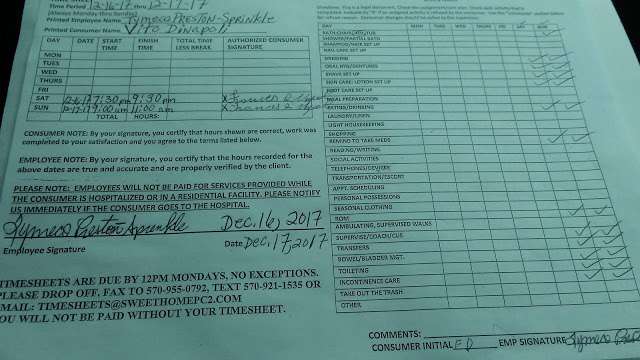 Time Period 12-16-17 12-17-17
(Always Monday thru Sunday)
Printed Employee Name: Tymeca PRESTON-Sprinkle
Printed Consumer Name: Vito Dinapoli
DAY DATE START TIME FINISH TIME TOTAL TIME LESS BREAK AUTHORIZED CONSUMER SIGNATURE
MON
TUES
WED
THURS
FRI
SAT 12-16-17 7:30 pm 9:30 pm X
SUN 12-17-17 9:00 am 11:00 am X
TOTAL HOURS:
CONSUMER NOTE: By your signature, you certify that hours shown are correct, work was
completed to your satisfaction and you agree to the terms listed below.
EMPLOYEE NOTE: By your signature, you certify that the hours recorded for the
above dates are true and accurate and are properly verified by the client.
PLEASE NOTE: EMPLOYEES WILL NOT BE PAID FOR SERVICES PROVIDED WHILE
THE CONSUMER IS HOSPITALIZED OR IN A RESIDENTIAL FACILITY. PLEASE NOTIFY
US IMMEDIATELY IF THE CONSUMER GOES TO THE HOSPITAL.
Tymeca Preston Sprinkle Dec. 16, 2017
Employee Signature Date Dec. 17, 2017
TIMESHEETS ARE DUE BY 12PM MONDAYS, NO EXCEPTIONS.
PLEASE DROP OFF, FAX TO 570-955-0792, TEXT 570-921-1535 OR
EMAIL: TIMESHEETS@SWEETHOMEPC2.COM
YOU WILL NOT BE PAID WITHOUT YOUR TIMESHEET.
DAY MON TUE WED THU FRI SAT SUN
SHOWER/PARTIAL BATH
SHAMPOO/HAIR SET UP
NAIL CARE SET UP
DRESSING
ORAL HYG/DENTURES
SHAVE SET UP
SKIN CARE: LOTION SET UP
FOOT CARE SET UP
MEAL PREPARATION
EATING/DRINKING
LAUNDRY/LINEN
LIGHT HOUSEKEEPING
SHOPPING
REMIND TO TAKE MEDS
READING/WRITING
SOCIAL ACTIVITIES
TELEPHONES/DEVICES
TRANSPORTATION/ESCORT
APPT. SCHEDULING
PERSONAL POSSESSIONS
SEASONAL CLOTHING
ROM
AMBULATING, SUPERVISED WALKS
SUPERVISE/COACH/CUE
TRANSFERS
BOWEL/BLADDER MGT.
TOILETING
INCONTINENCE CARE
TAKE OUT THE TRASH
OTHER
COMMENTS:
CONSUMER INITIAL FD EMP SIGNATURE Tymeca